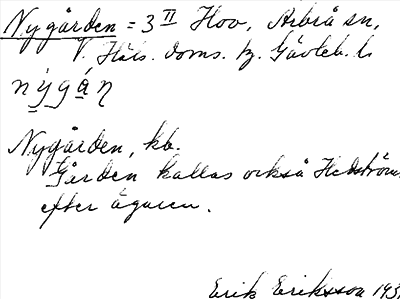 Nygården = 3 II Hov, Arbrå sn,
V. Häls. doms. tg. Gävleb. l.
nýgán
Nygården, kb.
Gården kallas också Hedströms
efter ägaren.
Erik Eriksson 193